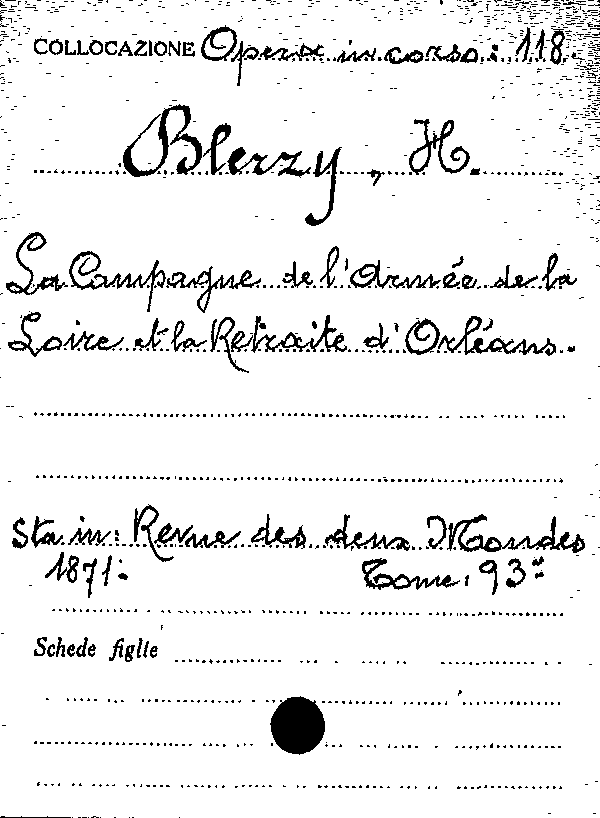 COLLOCAZIONE Opera in corso: 118.
Blerzy, H.
La Campagne de l'Armée de la
Loire et la Retraite d'Orléans.
Sta in: Revue des deux Mondes
1871. Tome. 93
Schede figlie